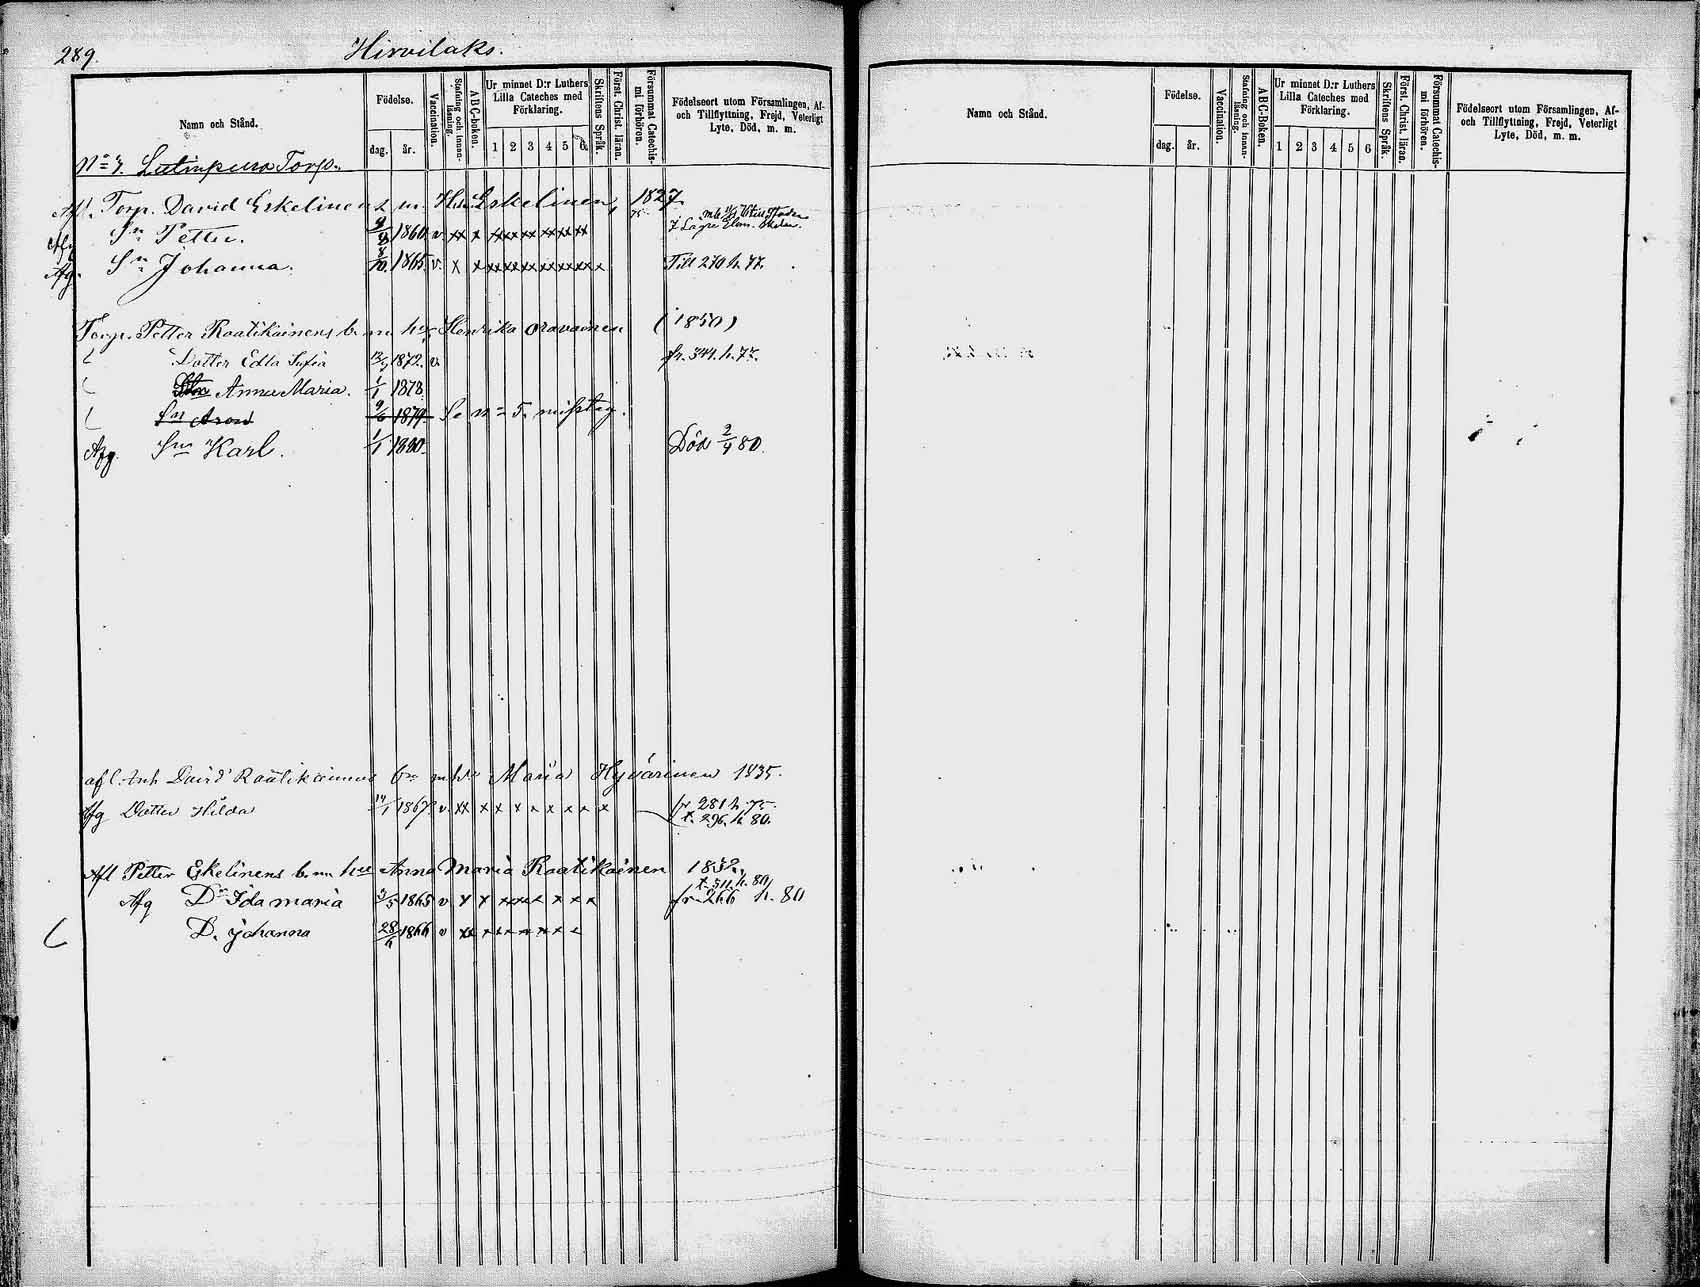 289.
Hirvilaks.
Namn och Stånd.
Födelse.
dag. år.
Vaccination.
Stafning och innanläsning.
ABC-boken.
Ur minnet D:r Luthers Lilla Cateches med Förklaring.
1 2 3 4 5 6
Skriftens Språk.
Först. Christ. läran.
Försummat Catechismi förhören.
Födelseort utom Församlingen, Af- och Tillflyttning, Frejd, Veterligt Lyte, Död, m. m.
Torp.
Afl. Torp. David Eskelinen Eskelinen, 1827
Afg Sn Petter. 1860 v. xx x xxxx xx xx xx
Afg. Johanna. 8/10. 1865 v. x x xxxx xx xx xx x Till 270 h. 77.
Torp. Petter Raatikainens b. m. h. Henrika Oravainen (1850)
Dotter Edla Sofia 1872. v. fr. 344. h. 77.
Anna Maria. 1/1 1878
Sn Aron 9/6 1879 Se n° 5. misstag.
Afg. Sn Karl. 1/1 1880. Död 2/4 80.
afl. Inh David Raatikainens Maria Hyvärinen 1835.
Afg Dotter Hilda 14/1 1867. v. xx x x x x x x x x fr 281 h. 75.
t. 296. h 80.
Afl Petter Eskelinens b. m. h. Anna Maria Raatikainen
t. 511. h. 80
Afg Dr Ida Maria 3/5 1865 v x x xxx x x x x fr 266 h. 80
D. Johanna 1866 v xx x x x x x x x
Namn och Stånd.
Födelse.
dag. år.
Vaccination.
Stafning och innanläsning.
ABC-Boken.
Ur minnet D:r Luthers Lilla Cateches med Förklaring.
1 2 3 4 5 6
Skriftens Språk.
Först. Christ. läran.
Försummat Catechismi förhören.
Födelseort utom Församlingen, Af- och Tillflyttning, Frejd, Veterligt Lyte, Död, m. m.